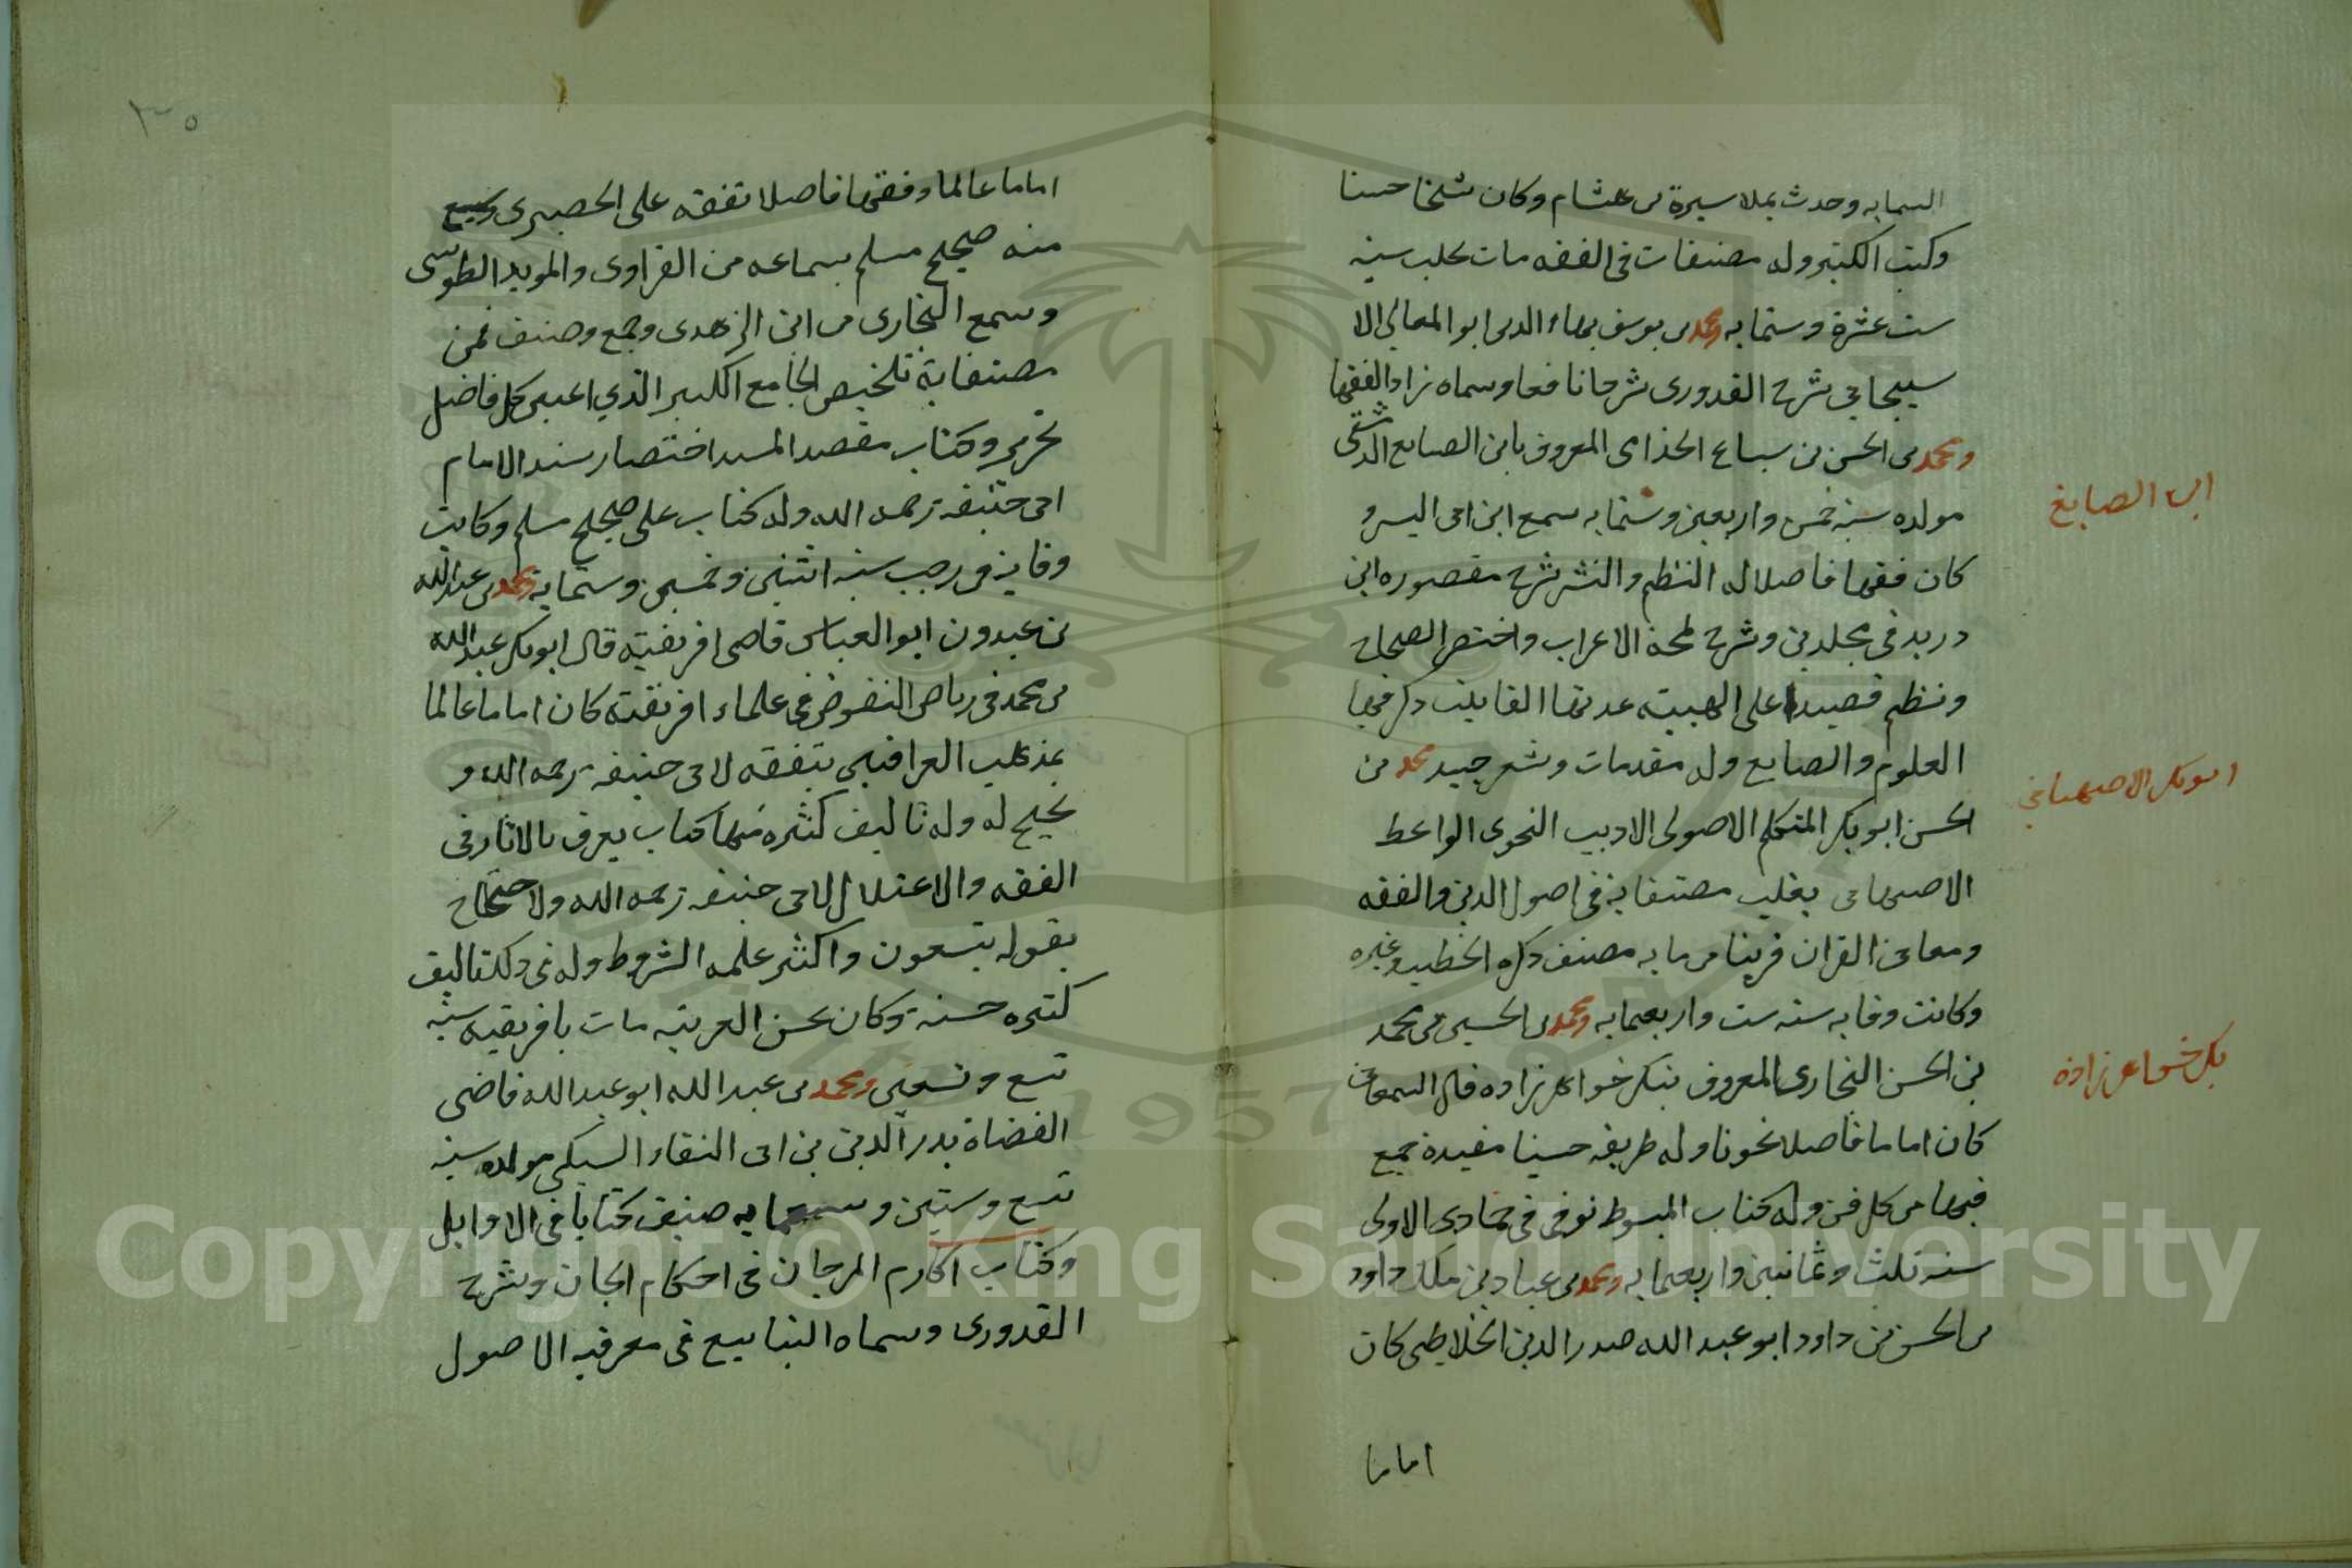 السمايه وحدث بملا سيرة بن هشام وكان شيخا حسنا
وكتب الكثير وله مصنفات في الفقه مات بحلب سنه
ست عشرة وستمايه ومحمد بن يوسف بهاء الدين ابو المعالي الا
سبيجابي شرح القدوري شرحا نافعا وسماه زاد الفقها
ومحمد بن الحسن بن سباع الجذامي المعروف بابن الصايع الدمشقي
مولده سنه خمس واربعين وستمايه سمع ابن ابي اليسر و
كان فقيها فاضلا له النظم والنثر شرح مقصوره ابن
دريد في مجلدين وشرح لمحة الاعراب واختصر الصحاح
ونظم قصيدا على الهيبته عدتها الفا بيت ذكر فيها
العلوم والصايع وله مقدمات وشعر جيد محمد بن
الحسن ابو بكر المتكلم الاصولي الاديب النحوي الواعظ
الاصبهاني بغلت مصنفاته في اصول الدين والفقه
ومعاني القران قريبا من مايه مصنف ذكره الخطيب وغيره
وكانت وفاته سنه ست واربعمايه ومحمد بن الحسين بن محمد
بن الحسن البخاري المعروف ببكر خواهر زاده قال السمعاني
كان اماما فاضلا نحويا وله طريقه حسينا مفيدة جمع
فيها من كل فن وله كتاب المبسوط توفي في جمادى الاولى
سنه ثلث وثمانين واربعمايه ومحمد بن عباد بن ملك داود
بن الحسن بن داود ابو عبد الله صدر الدين الخلاطي كان
اماما
ابن الصايغ
ابو بكر الاصبهاني
بكر خواهر زاده
٣٥
اماما عالما وفقيها فاضلا تفقه على الحصيري وسمع
منه صحيح مسلم بسماعه من الفراوي والمويد الطوسي
وسمع البخاري من ابن الزهدي وجمع وصنف فمن
مصنفاته تلخيص الجامع الكبير الذي اعيى كل فاضل
تحريره وكتاب مقصد المسند اختصار سند الامام
ابي حنيفه رحمه الله وله كتاب على صحيح مسلم وكانت
وفاته في رجب سنه اثنين وخمسين وستمايه ومحمد بن عبد الله
بن عبدون ابو العباس قاضي افريقية قال ابو بكر عبد الله
بن محمد في رياض النفوض في علماء افريقية كان اماما عالما
بمذهب العراقيين يتفقه لابي حنيفه رحمه الله و
يحتج له وله تاليف كثيره منها كتاب يعرف بالاثار في
الفقه والاعتلال لابي حنيفه رحمه الله والاحتجاج
بقوله تسعون واكثر علمه الشروط وله في ذلك تاليف
كثيره حسنة وكان يحسن العربية مات بافريقيه سنه
تسع وتسعين ومحمد بن عبد الله ابو عبد الله قاضي
القضاة بدر الدين بن ابي البقاء السبكي مولده سنه
تسع وستين وسبعمايه صنف كتابا في الاوايل
وكتاب اكارم المرجان في احكام الجان وشرح
القدوري وسماه الينابيع في معرفه الاصول
Copyright © King Saud University
1957